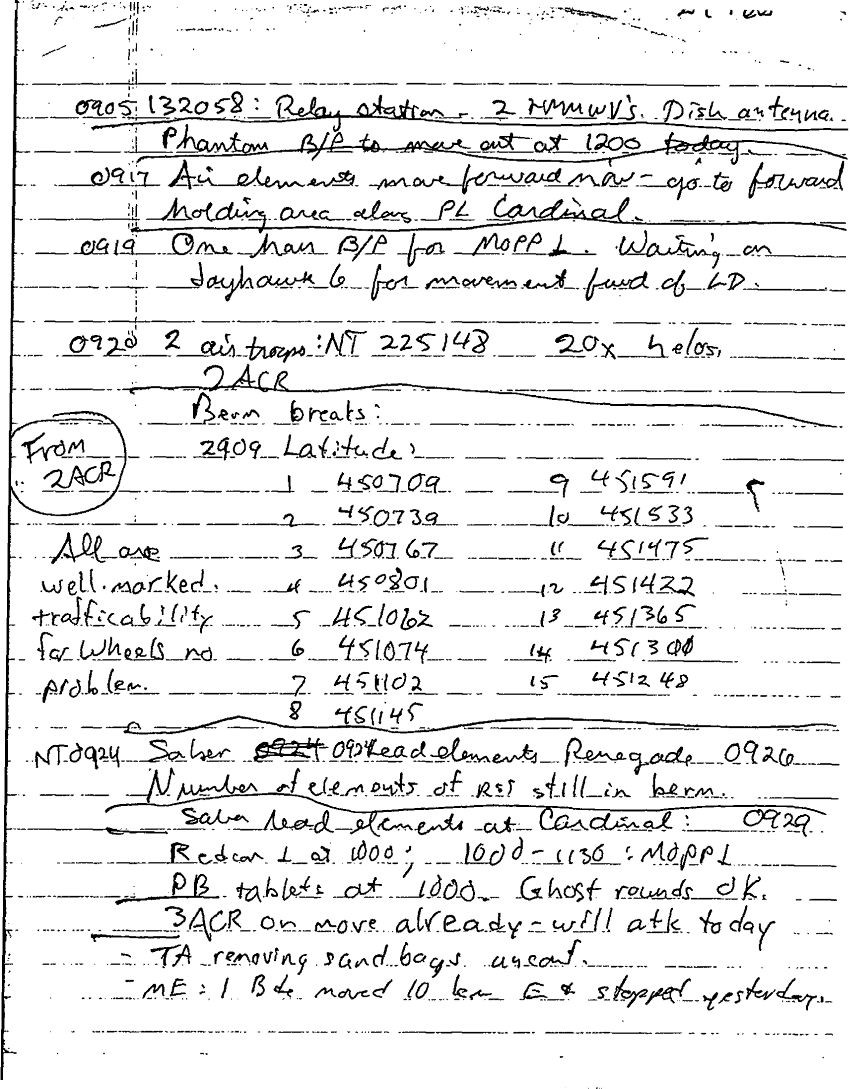 0905 132058: Relay station - 2 HMMWV's. Dish antenna.
Phantom B/P to move out at 1200 today.
0917 Air elements move forward now - go to forward
holding area along PL Cardinal.
0919 One hour B/P for MOPP 1. Waiting on
Jayhawk 6 for movement fwd of LD.
0920 2 air troops: NT 225148 20x helos.
2ACR
Berm breaks:
From 2909 Latitude:
2ACR
1 450709 9 451591
2 450739 10 451533
All are 3 450767 11 451475
well marked. 4 450801 12 451422
trafficability 5 451062 13 451365
for wheels no 6 451074 14 451300
problem. 7 451102 15 451248
8 451145
NT0924 Saber 0924 0924 lead elements Renegade 0926
Number of elements of still in berm.
Saber lead elements at Cardinal: 0929
Redcon 1 at 1000; 1000-1130: MOPP 1
PB tablets at 1000. Ghost rounds OK.
3ACR on move already - will atk today
- TA removing sand bags unconf.
- ME: 1 Bde moved 10 km E & stopped yesterday.